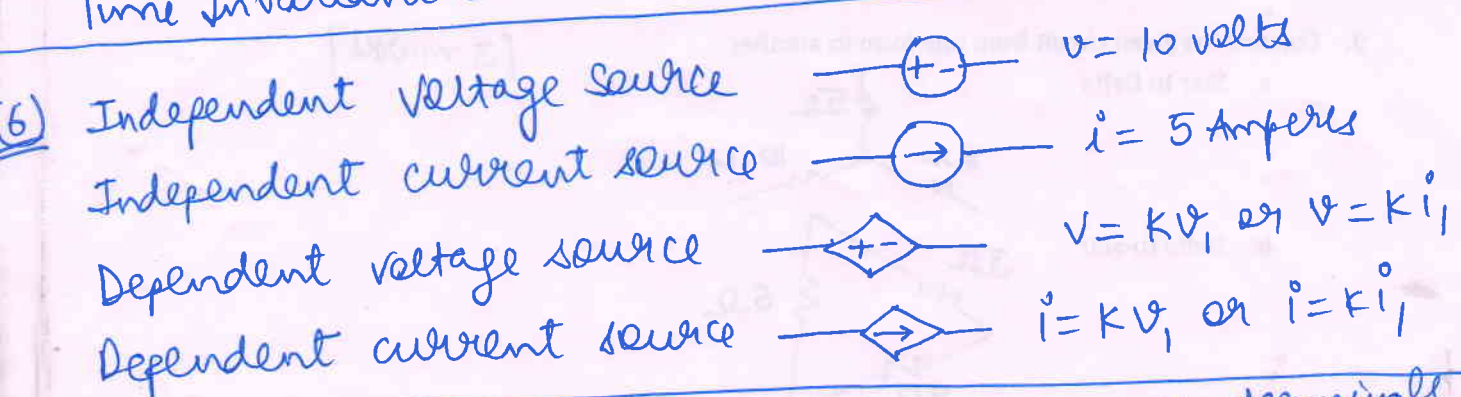 Time Invariant
(6) Independent voltage source + - v = 10 volts
Independent current source → i = 5 Amperes
Dependent voltage source + - v = kv₁ or v = ki₁
Dependent current source → i = kv₁ or i = ki₁
terminals